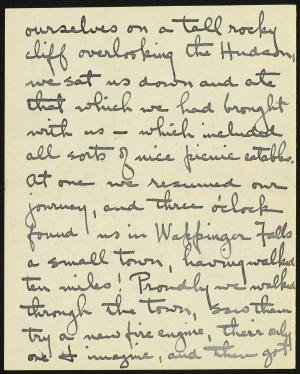 ourselves on a tall rocky
cliff overlooking the Hudson,
we sat us down and ate
that which we had brought
with us – which included
all sorts of nice picnic eatables.
At one we resumed our
journey, and three o'clock
found us in Wappinger Falls
a small town, having walked
ten miles! Proudly we walked
through the town, saw them
try a new fire engine, their only
one I imagine, and then got